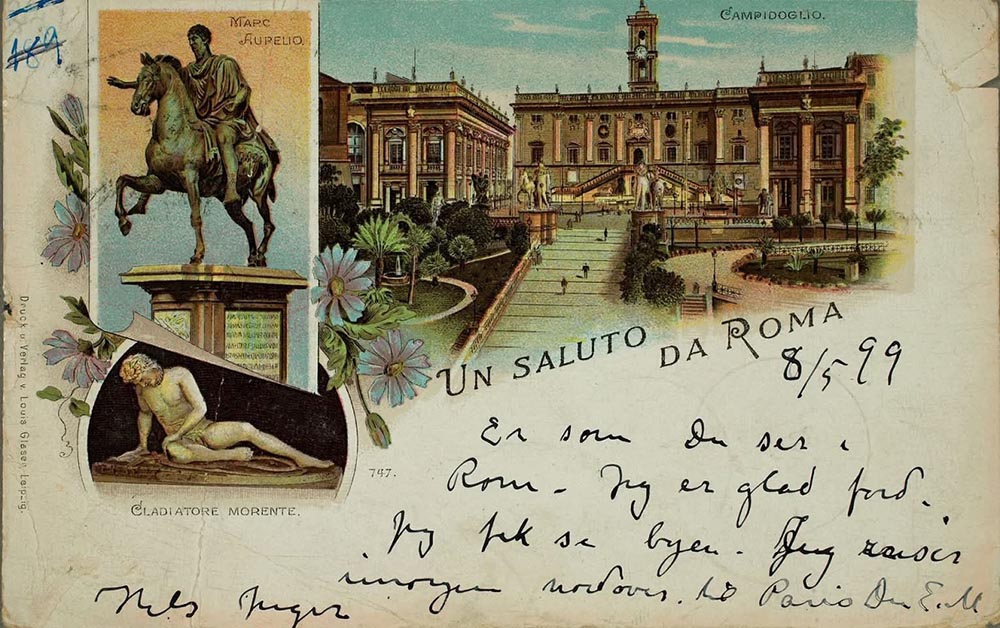 189
MARC AURELIO.
CAMPIDOGLIO.
UN SALUTO DA ROMA
8/5 99
Er som Du ser i
Rom - Jeg er glad ford.
Jeg fik se byen - Jeg reiser
imorgen nordover. til Paris Din E.M
Hils
GLADIATORE MORENTE.
747.
Druck u Verlag v. Louis Glaser, Leipzig.